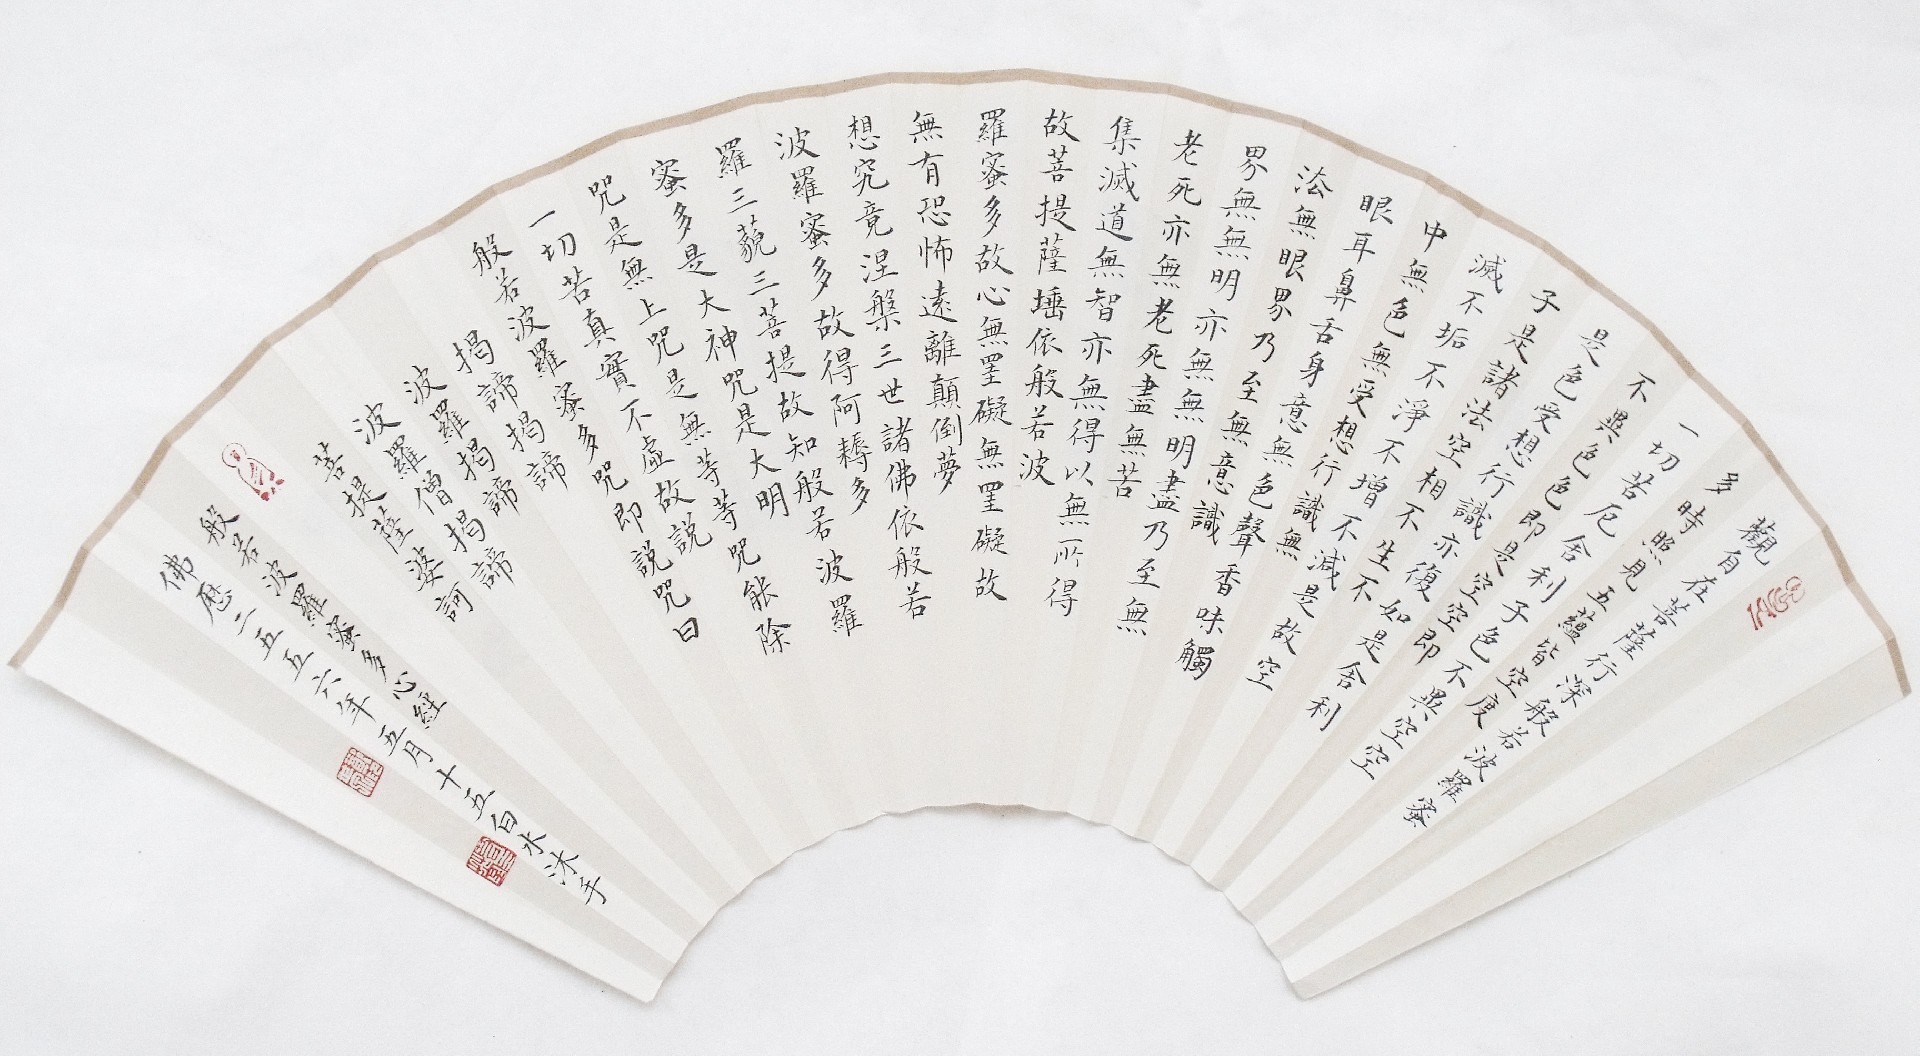 觀自在菩薩行深般若波羅蜜
多時照見五蘊皆空度
一切苦厄舍利子色不異空空
不異色色即是空空即
是色受想行識亦復如是舍利
子是諸法空相不生不
滅不垢不淨不增不減是故空
中無色無受想行識無
眼耳鼻舌身意無色聲香味觸
法無眼界乃至無意識
界無無明亦無無明盡乃至無
老死亦無老死盡無苦
集滅道無智亦無得以無所得
故菩提薩埵依般若波
羅蜜多故心無罣礙無罣礙故
無有恐怖遠離顛倒夢
想究竟涅槃三世諸佛依般若
波羅蜜多故得阿耨多
羅三藐三菩提故知般若波羅
蜜多是大神咒是大明
咒是無上咒是無等等咒能除
一切苦真實不虛故說
般若波羅蜜多咒即說咒曰
揭諦揭諦
波羅揭諦
波羅僧揭諦
菩提薩婆訶
般若波羅蜜多心經
佛歷二五五六年五月十五白水沐手